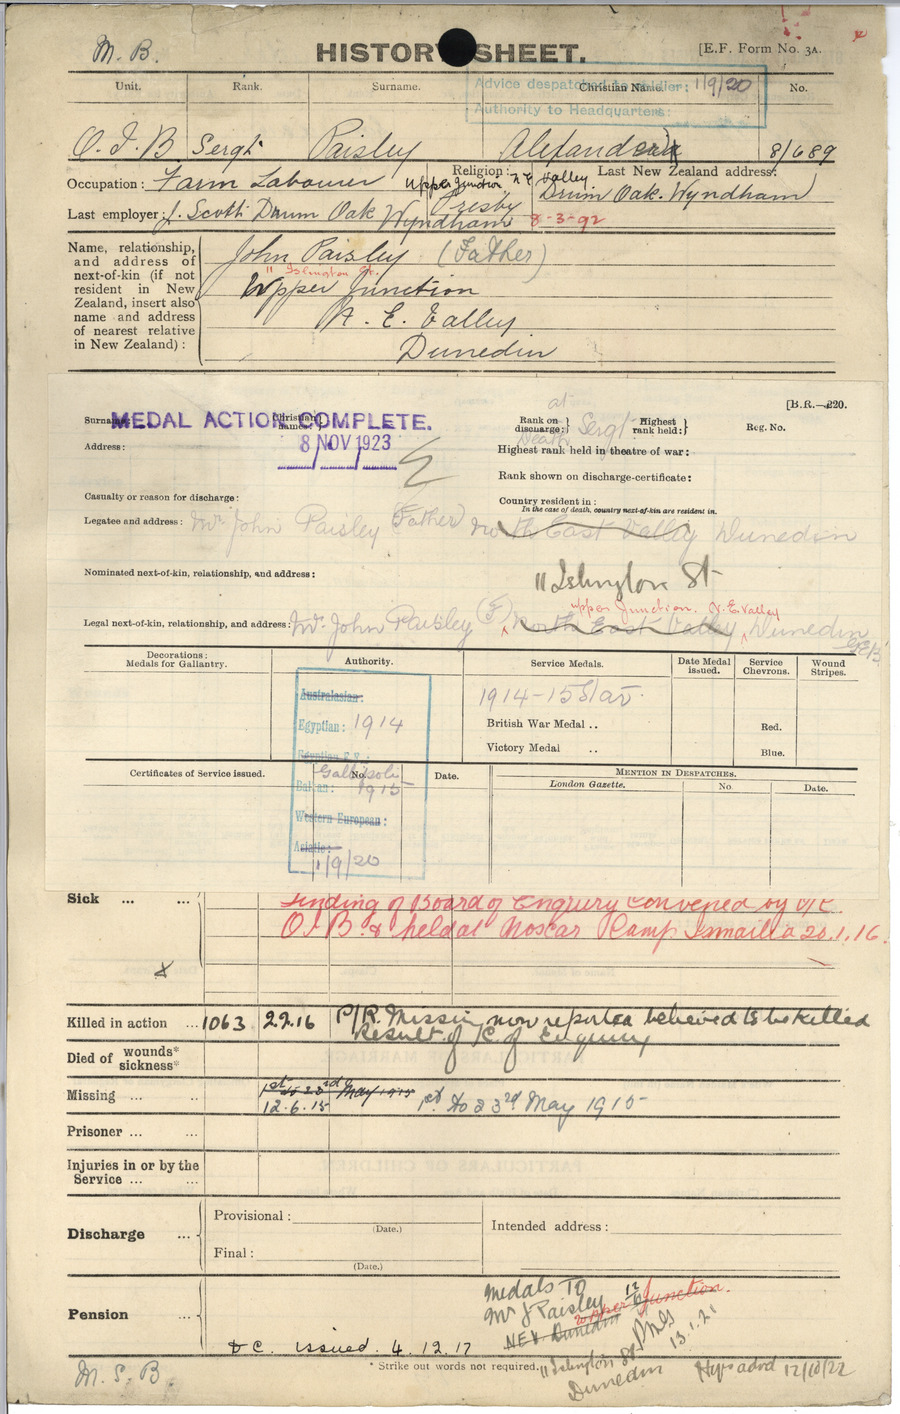 M. B.
HISTORY SHEET.
[E.F. Form No. 3A.
Unit. Rank. Surname. Christian Name. No.
Advice despatched to soldier: 1/9/20
Authority to Headquarters:
O. I. B Sergt. Paisley Alexander 8/689
Occupation: Farm Labourer Religion: Presby Last New Zealand address:
Upper Junction N E Valley Drum Oak. Wyndham
Last employer: J. Scott Drum Oak Wyndham 8-3-92
Name, relationship,
and address of
next-of-kin (if not
resident in New
Zealand, insert also
name and address
of nearest relative
in New Zealand):
John Paisley (Father)
11 Islington St.
Upper Junction
N. E. Valley
Dunedin
[B.R.—220.
Surname: Christian names:
MEDAL ACTION COMPLETE.
8 NOV 1923
at
Rank on discharge: Death Sergt Highest rank held: Reg. No.
Address:
Highest rank held in theatre of war:
Rank shown on discharge-certificate:
Casualty or reason for discharge:
Country resident in:
In the case of death, country next-of-kin are resident in.
Legatee and address: Mr John Paisley (Father) North East Valley Dunedin
Nominated next-of-kin, relationship, and address:
11 Islington St
upper Junction. N.E. Valley
Legal next-of-kin, relationship, and address: Mr John Paisley (F) North East Valley, Dunedin
Decorations:
Medals for Gallantry.
Authority. Service Medals. Date Medal issued. Service Chevrons. Wound Stripes.
Australasian:
Egyptian: 1914
Egyptian E.F.:
Gallipoli
Balkan: 1915
Western European:
Asiatic:
1/9/20
1914-15 Star
British War Medal ..
Victory Medal ..
Red.
Blue.
Certificates of Service issued. No. Date.
Mention in Despatches.
London Gazette. No. Date.
Sick ... ...
Finding of Board of Enquiry convened by O/C.
O. I B. & held at Moscar Camp Ismailia 20.1.16.
Killed in action ... 1063 22.2.16 P/R. Missing now reported believed to be killed
Result of C. of Enquiry
Died of wounds*
sickness*
Missing ... .. 1st to 23rd May 1915
12.6.15 1st. to 23rd May 1915
Prisoner ... ...
Injuries in or by the
Service ... ...
Discharge ...
Provisional:
(Date.)
Final:
(Date.)
Intended address:
Pension ...
Medals To
Mr J Paisley
Upper Junction.
NEV Dunedin
13.1.21
11 Islington St
Dunedin
D C. issued 4.12.17
* Strike out words not required.
M. S. B. 12/10/22